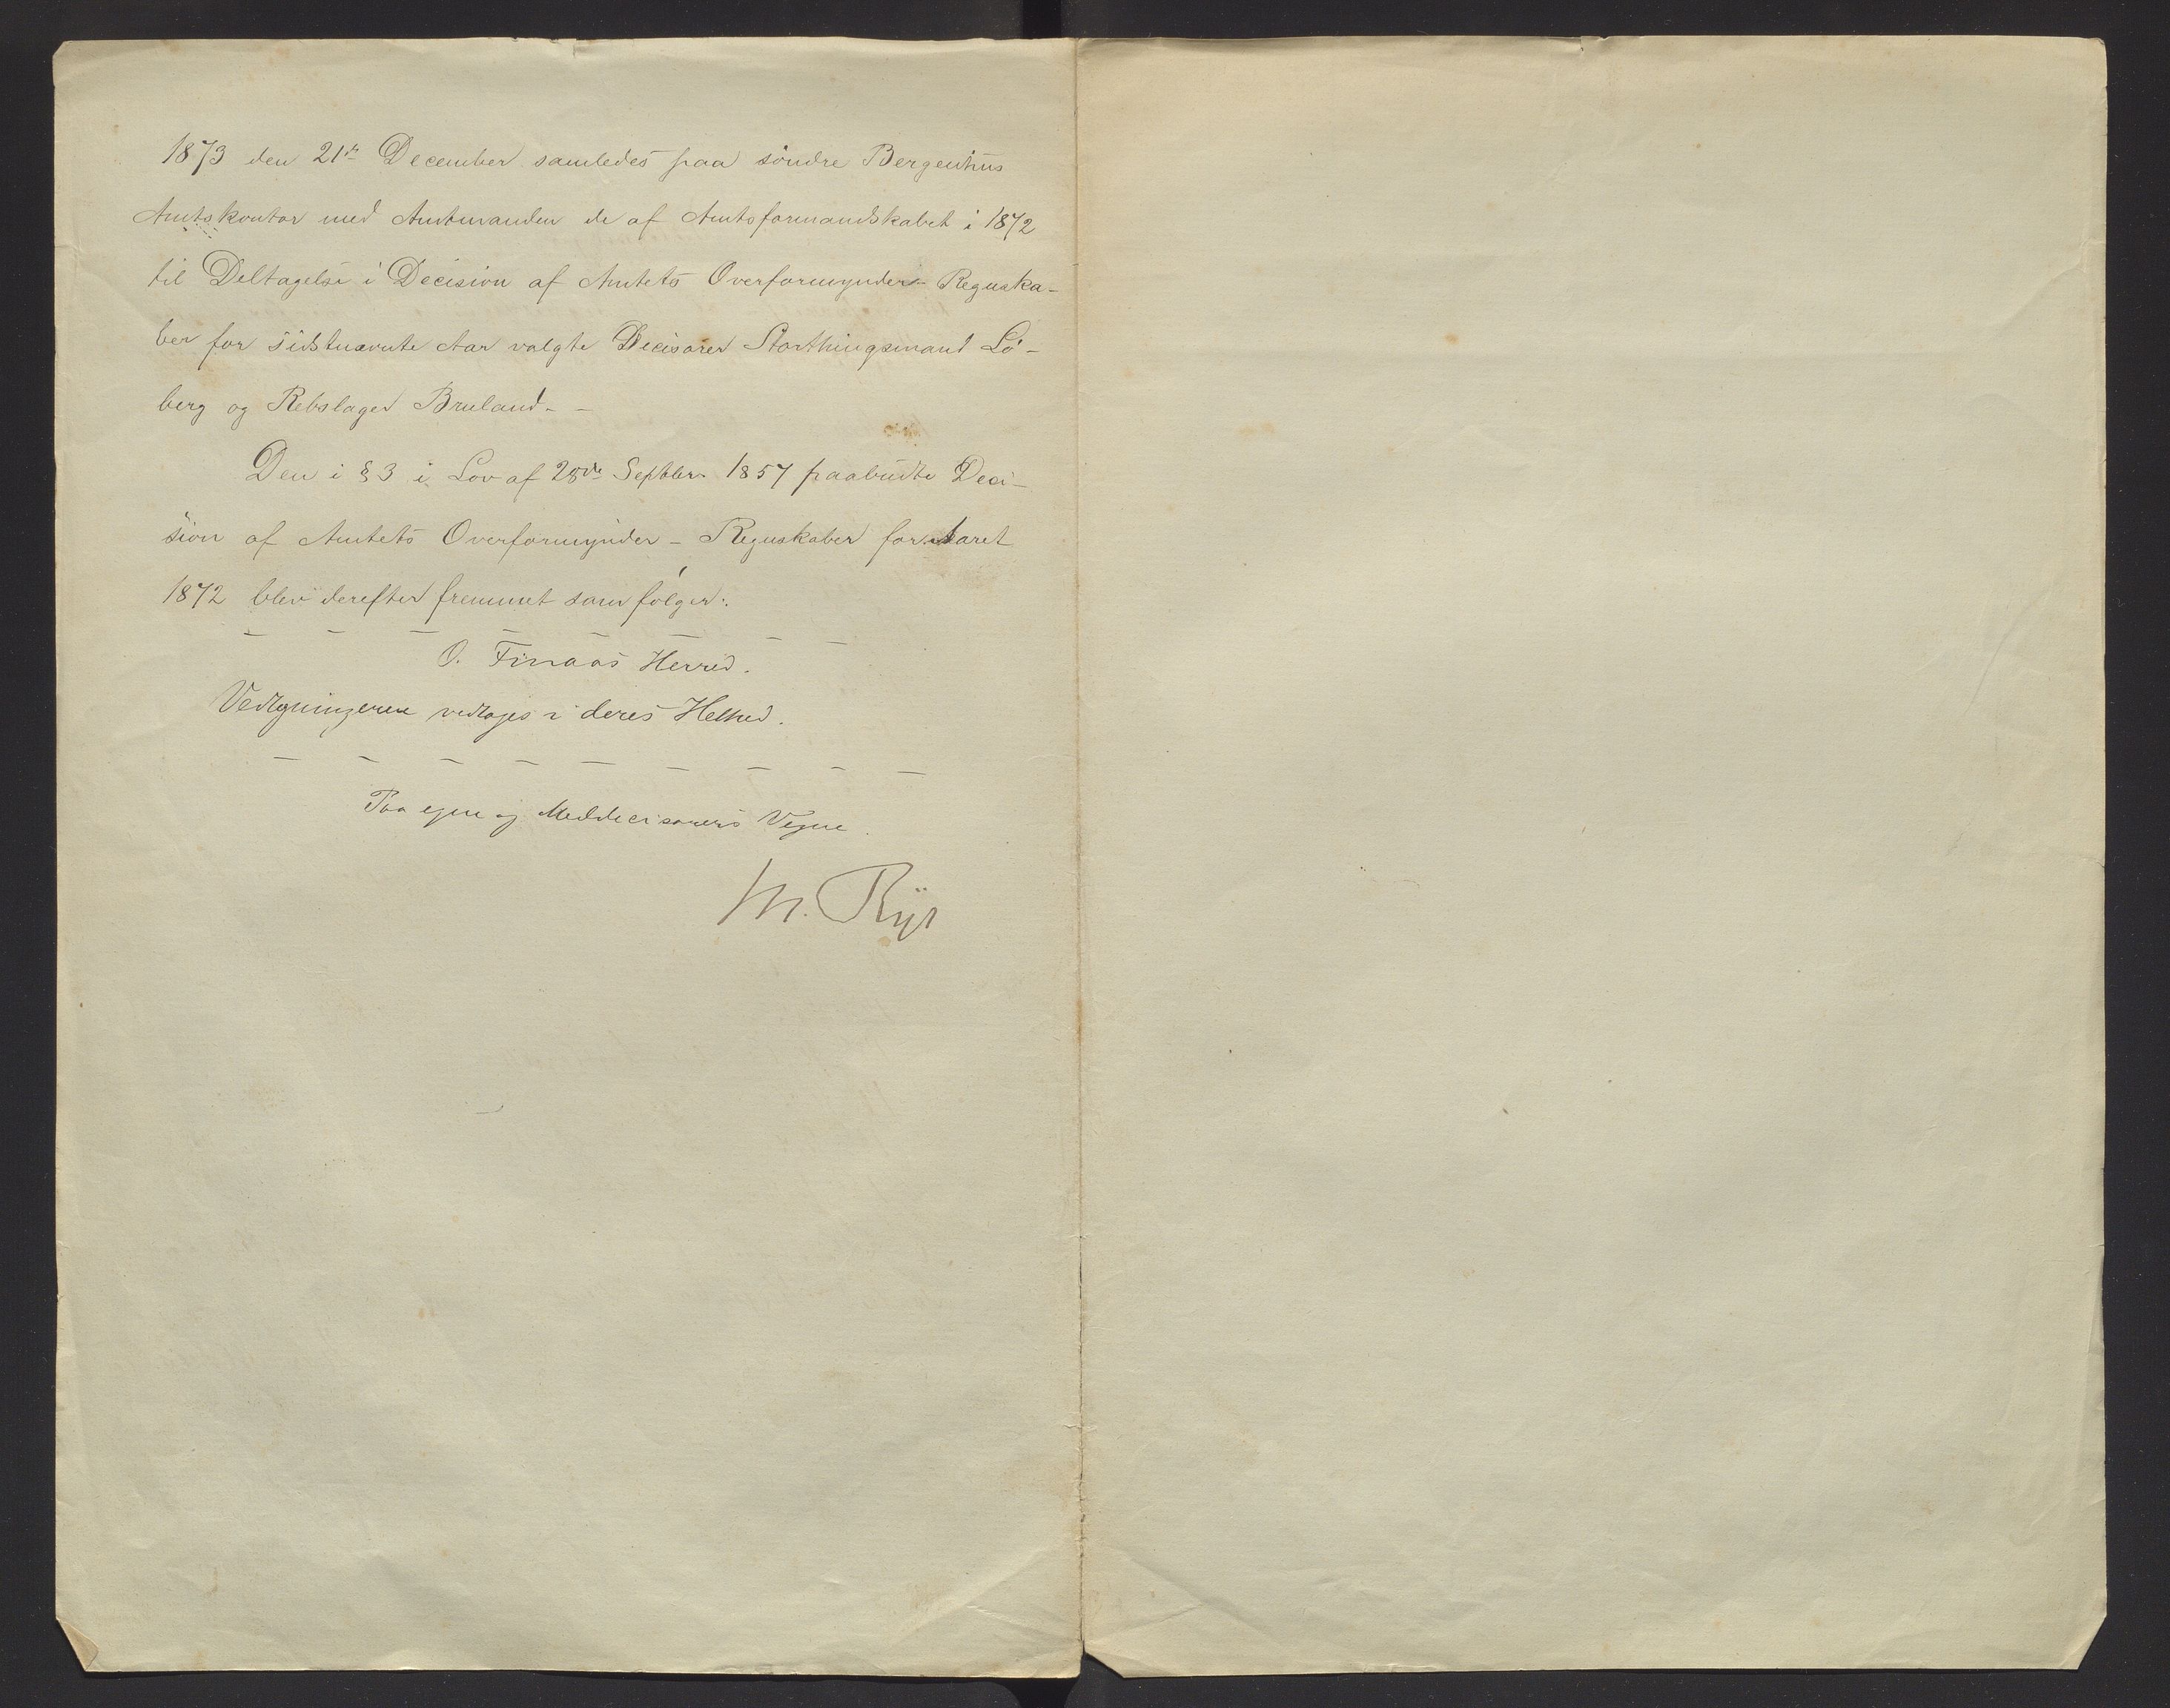 1873 den 21de December samledes paa söndre Bergenhus
Amtskontor med Amtmanden de af Amtsformandskabet i 1872
til Deltagelse i Decision af Amtets Overformynder-Regnska-
ber for sidstnævnte Aar valgte Decisorer Storthingsmand Lö-
berg og Rebslager Bruland. -
Den i § 3 i Lov af 28de Septbr. 1857 paabudte Deci-
sion af Amtets Overformynder-Regnskaber for Aaret
1872 blev derefter fremmet som fölger:
O. Finaas Herred.
Vedtegningerne vedtoges i deres Helhed.
Paa egne og Meddecisorers Vegne.
M. Ryt